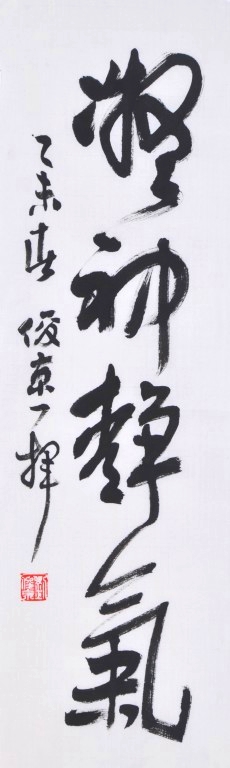 凝神靜氣
乙未春 俊京一揮